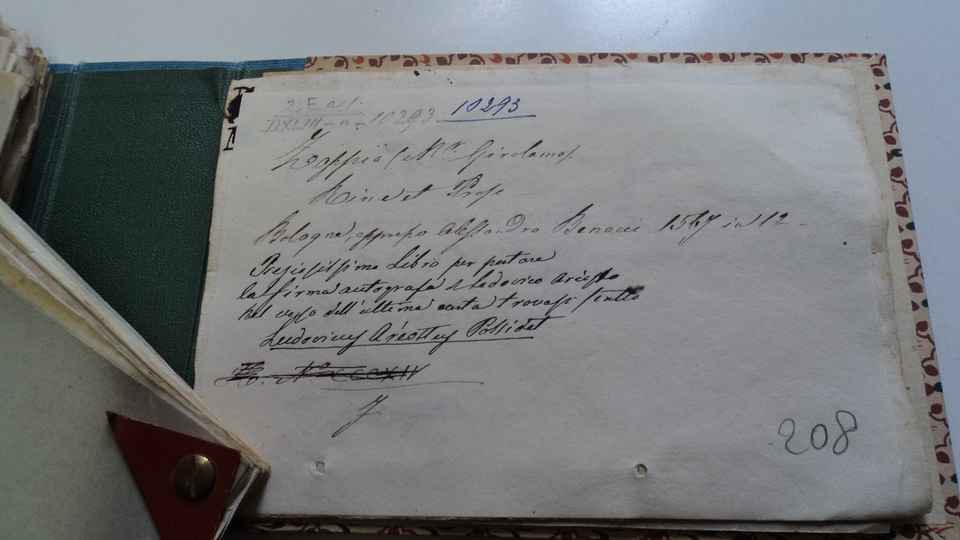 10293 10293
Zoppio (M.r Girolamo)
Rime et Prose
Bologna, appresso Alessandro Benacci 1567 in 12 -
Preziosissimo Libro per portare
la firma autografa di Ludovico Ariosto
nel verso dell'ultima carta trovasi scritto
Ludovicus Areostus Possidet
N.o CCCXII
208